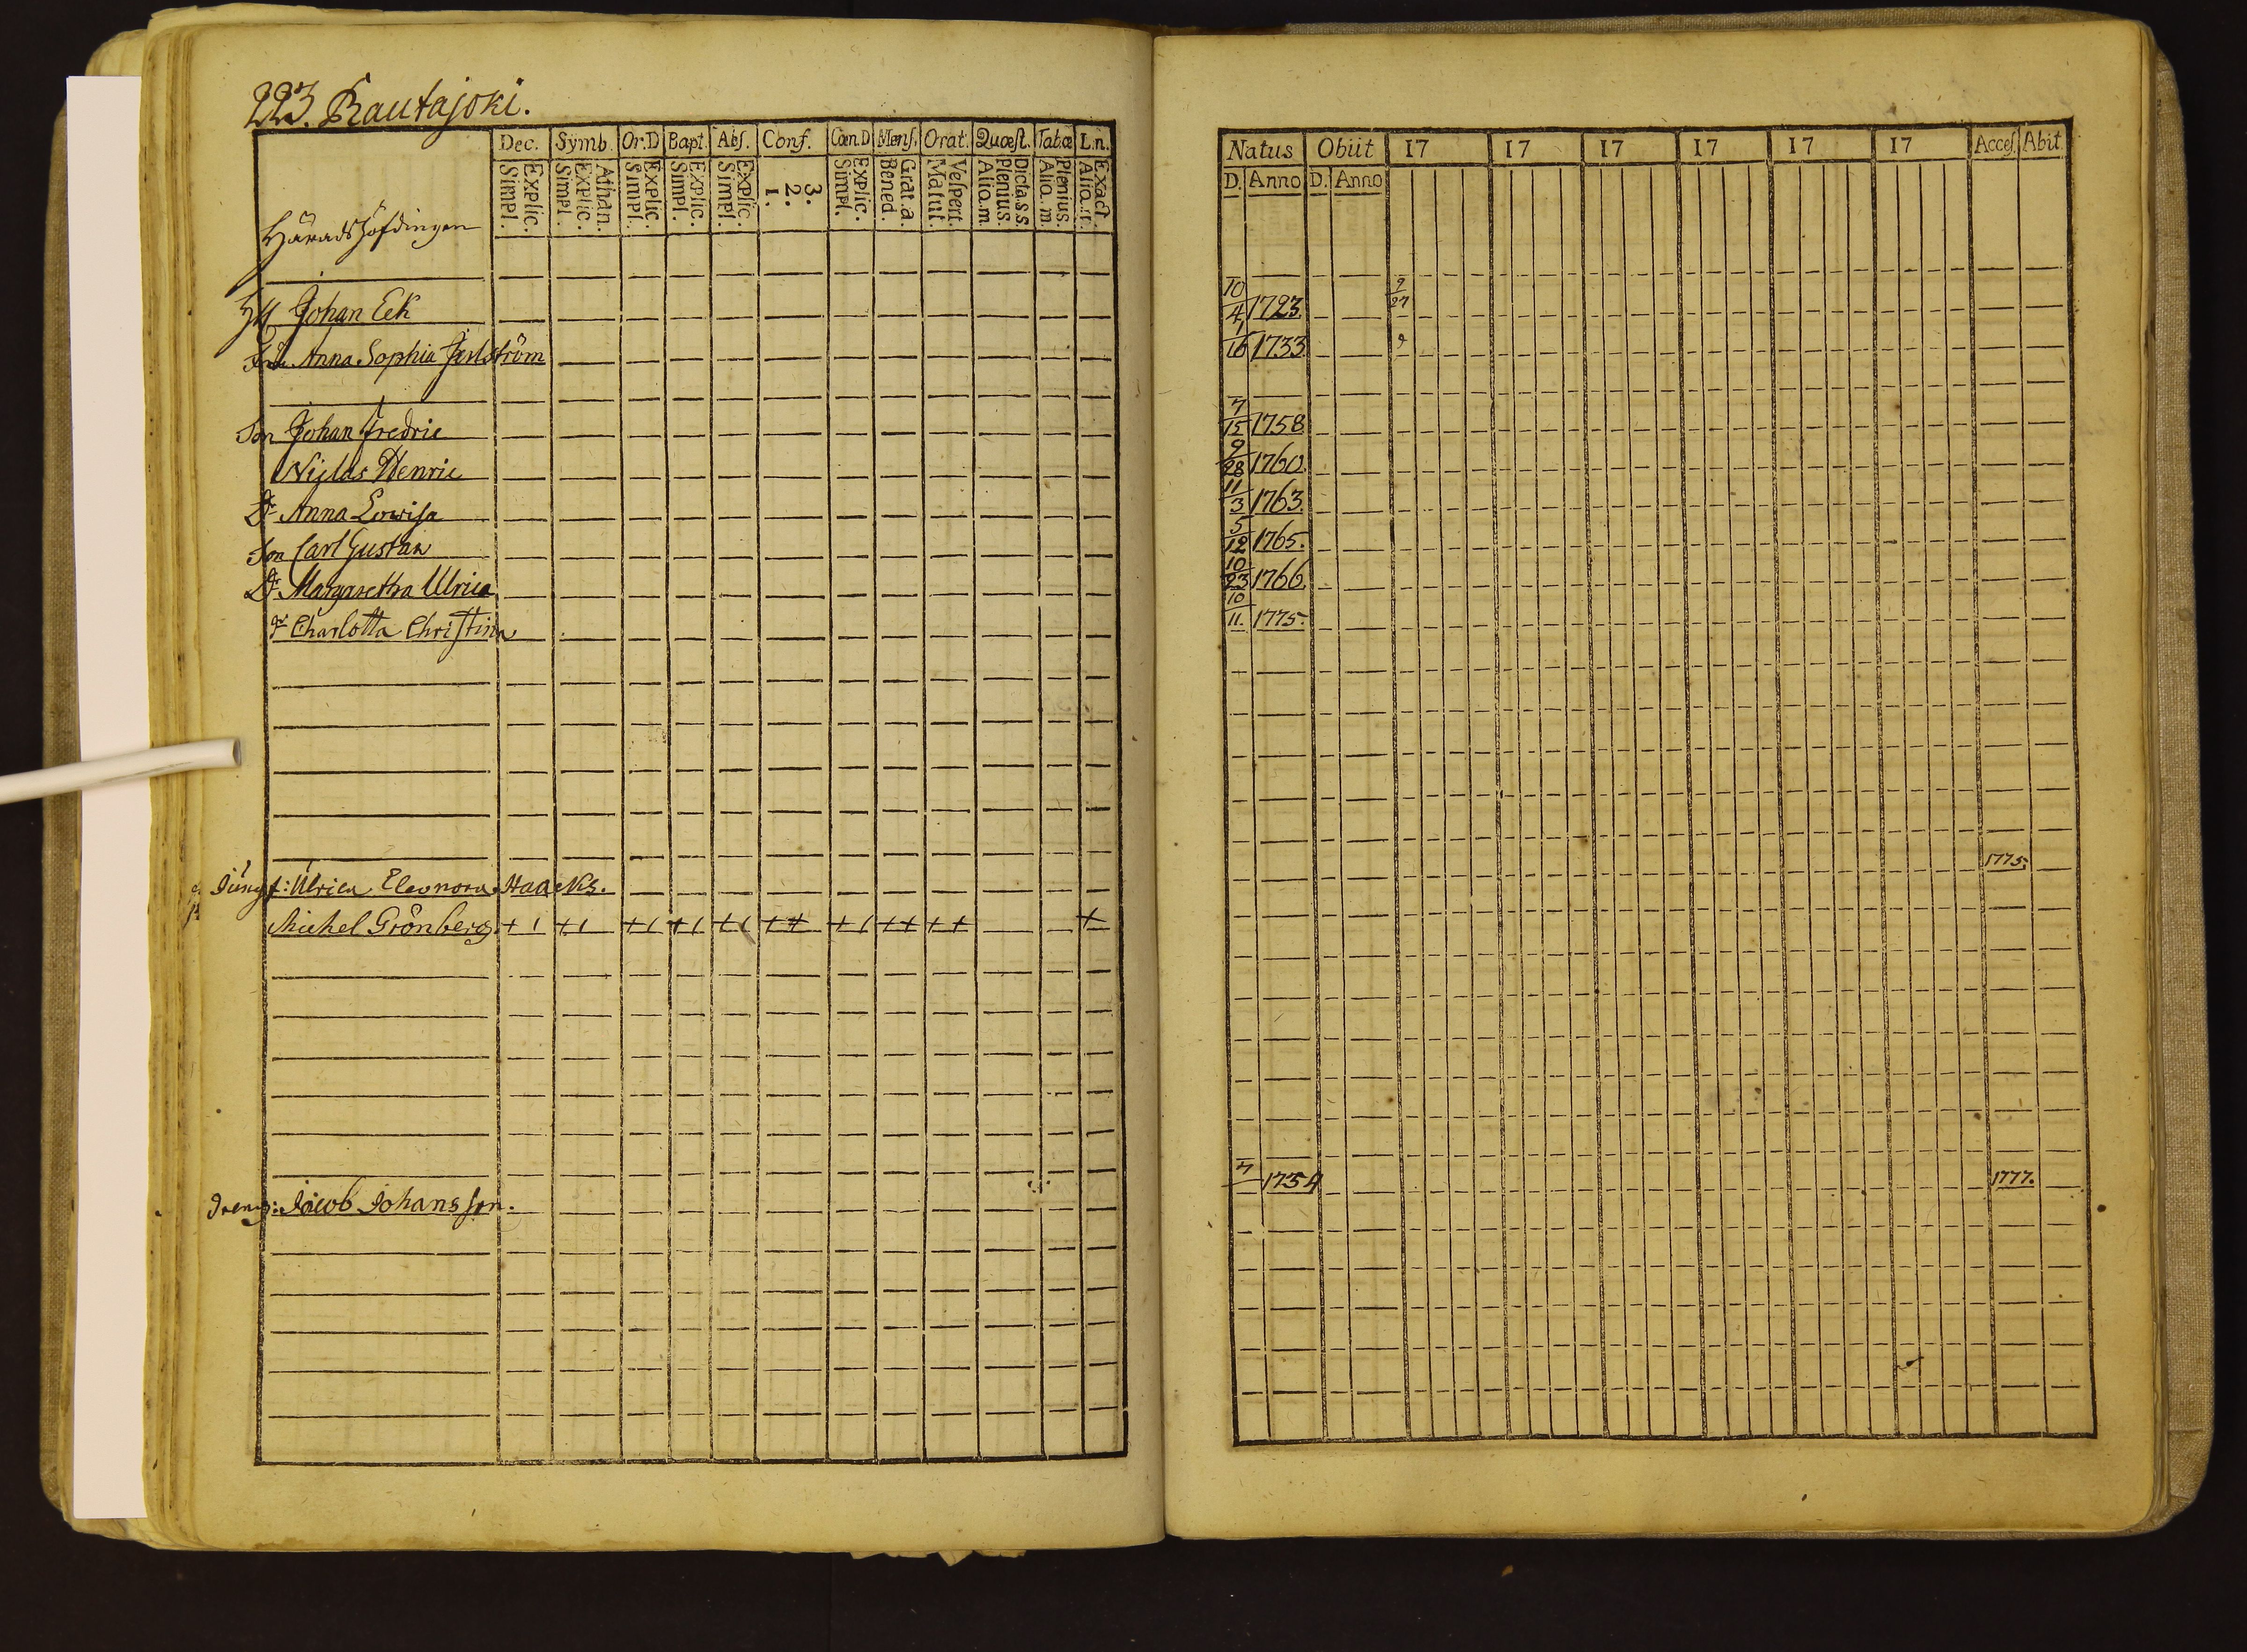 223. Rautajoki.
Dec. Symb. Or.D Bapt. Abs. Conf. Cœn.D Mens. Orat. Quæst. Tab.œ L.n.
Explic. Simpl. Athan. Explic. Simpl. Explic. Simpl. Explic. Simpl. Explic. Simpl. 3. 2. 1. Explic. Simpl. Grat.a. Bened. Vespert. Matut. Dicta.s.s. Plenius. Aliq.m. Plenius. Aliq.m. Exact. Aliq.
Häradshöfdingen
Johan Eek
Anna Sophia
Son Johan Fredric
Niclas Henric
Dr Anna Lowisa
Son Carl Gustaw
Dr Margaretha Ulrica
Dr Charlotta Christina
Jungf: Ulrica Eleonora Haacks.
Michel Grönberg + 1 + 1 + 1 + 1 + 1 + + + 1 + + + + +
Dreng: Jacob Johansson.
Natus Obiit 17 17 17 17 17 17 Acces. Abit.
D. Anno D. Anno
10/4 1723. 9/27
1/16 1733. 9
7/15 1758
9/28 1760.
11/3 1763.
5/12 1765.
10/23 1766
10/11. 1775.
1775.
7 1754 1777.